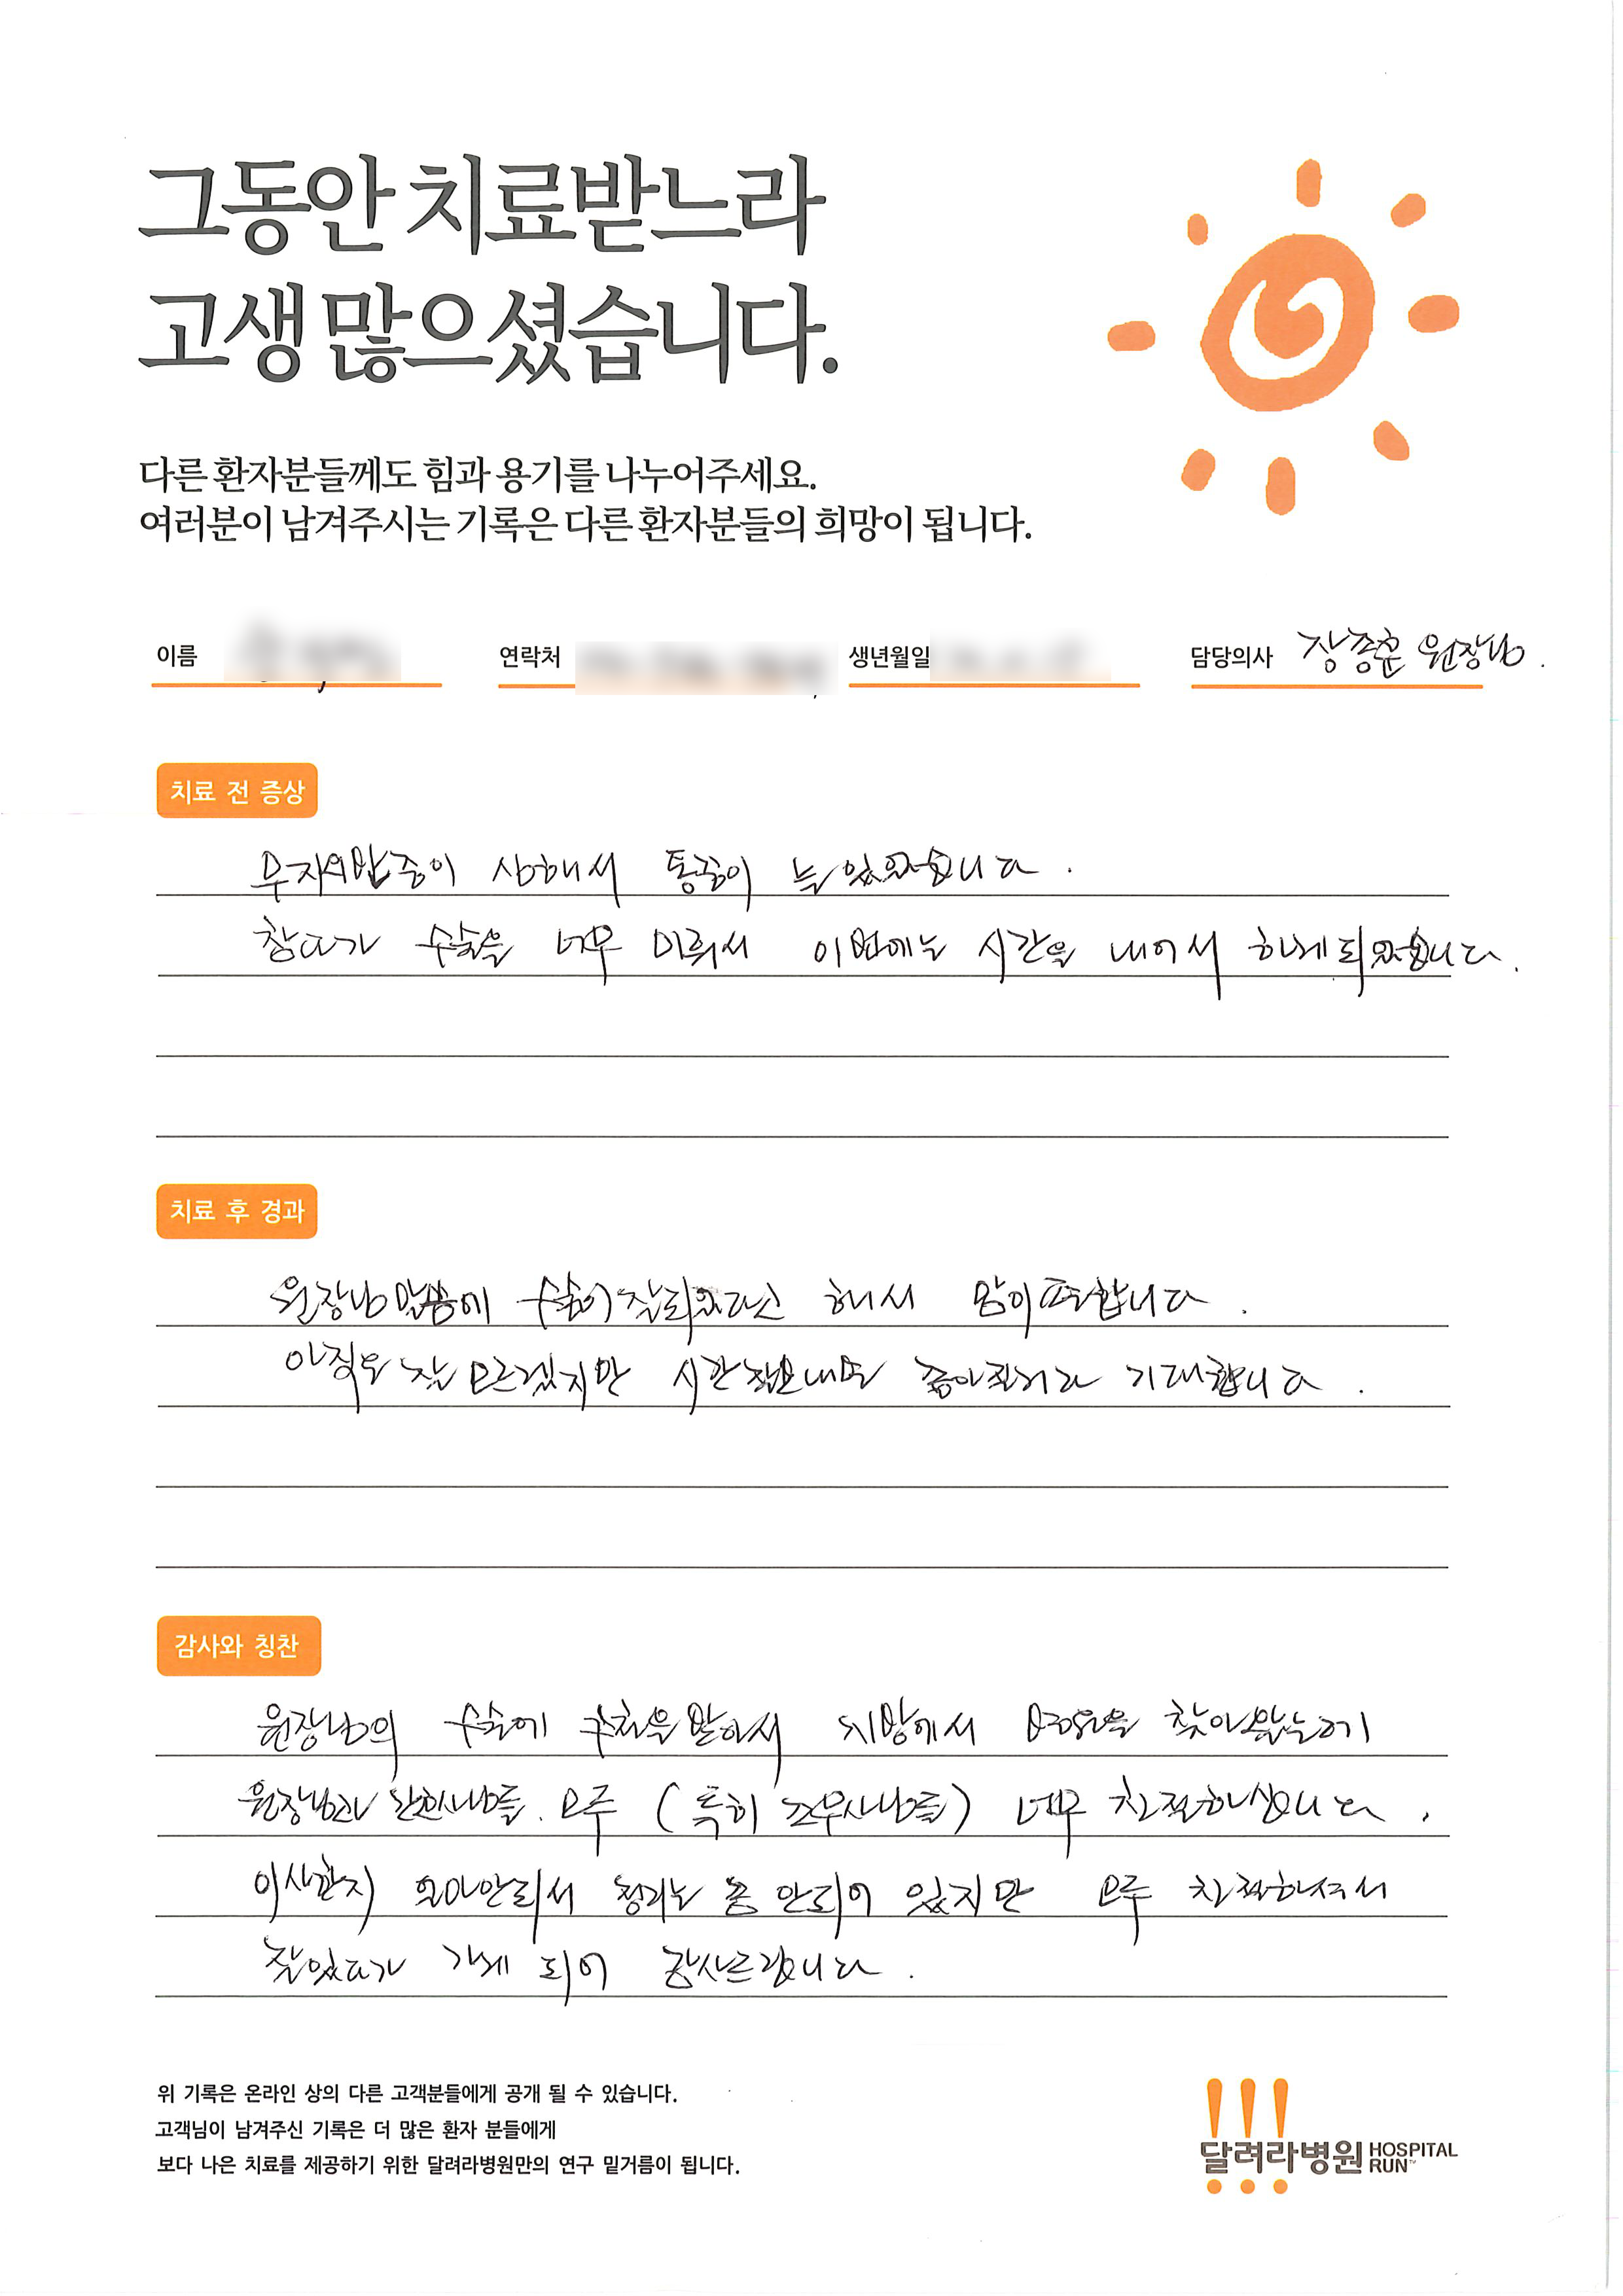 그동안 치료받느라
고생 많으셨습니다.
다른 환자분들께도 힘과 용기를 나누어주세요.
여러분이 남겨주시는 기록은 다른 환자분들의 희망이 됩니다.
이름 연락처 생년월일 담당의사 장종훈 원장님.
치료 전 증상
무지외반증이 심해서 통증이 늘 있었습니다.
참다가 수술을 너무 미뤄서 이번에는 시간을 내어서 하게 되었습니다.
치료 후 경과
원장님 말씀에 수술이 잘되었다고 해서 맘이 편합니다.
아직은 잘 모르겠지만 시간 지나면 좋아질거라 기대합니다.
감사와 칭찬
원장님의 수술에 추천을 받아서 지방에서 병원을 찾아왔는데
원장님과 간호사님들. 모두 (특히 조무사님들) 너무 친절하십니다.
이사한지 얼마안되서 정리는 좀 안되어 있지만 모두 친절하셔서
잘있다가 가게 되어 감사드립니다.
위 기록은 온라인 상의 다른 고객분들에게 공개 될 수 있습니다.
고객님이 남겨주신 기록은 더 많은 환자 분들에게
보다 나은 치료를 제공하기 위한 달려라병원만의 연구 밑거름이 됩니다.
달려라병원 HOSPITAL RUN™